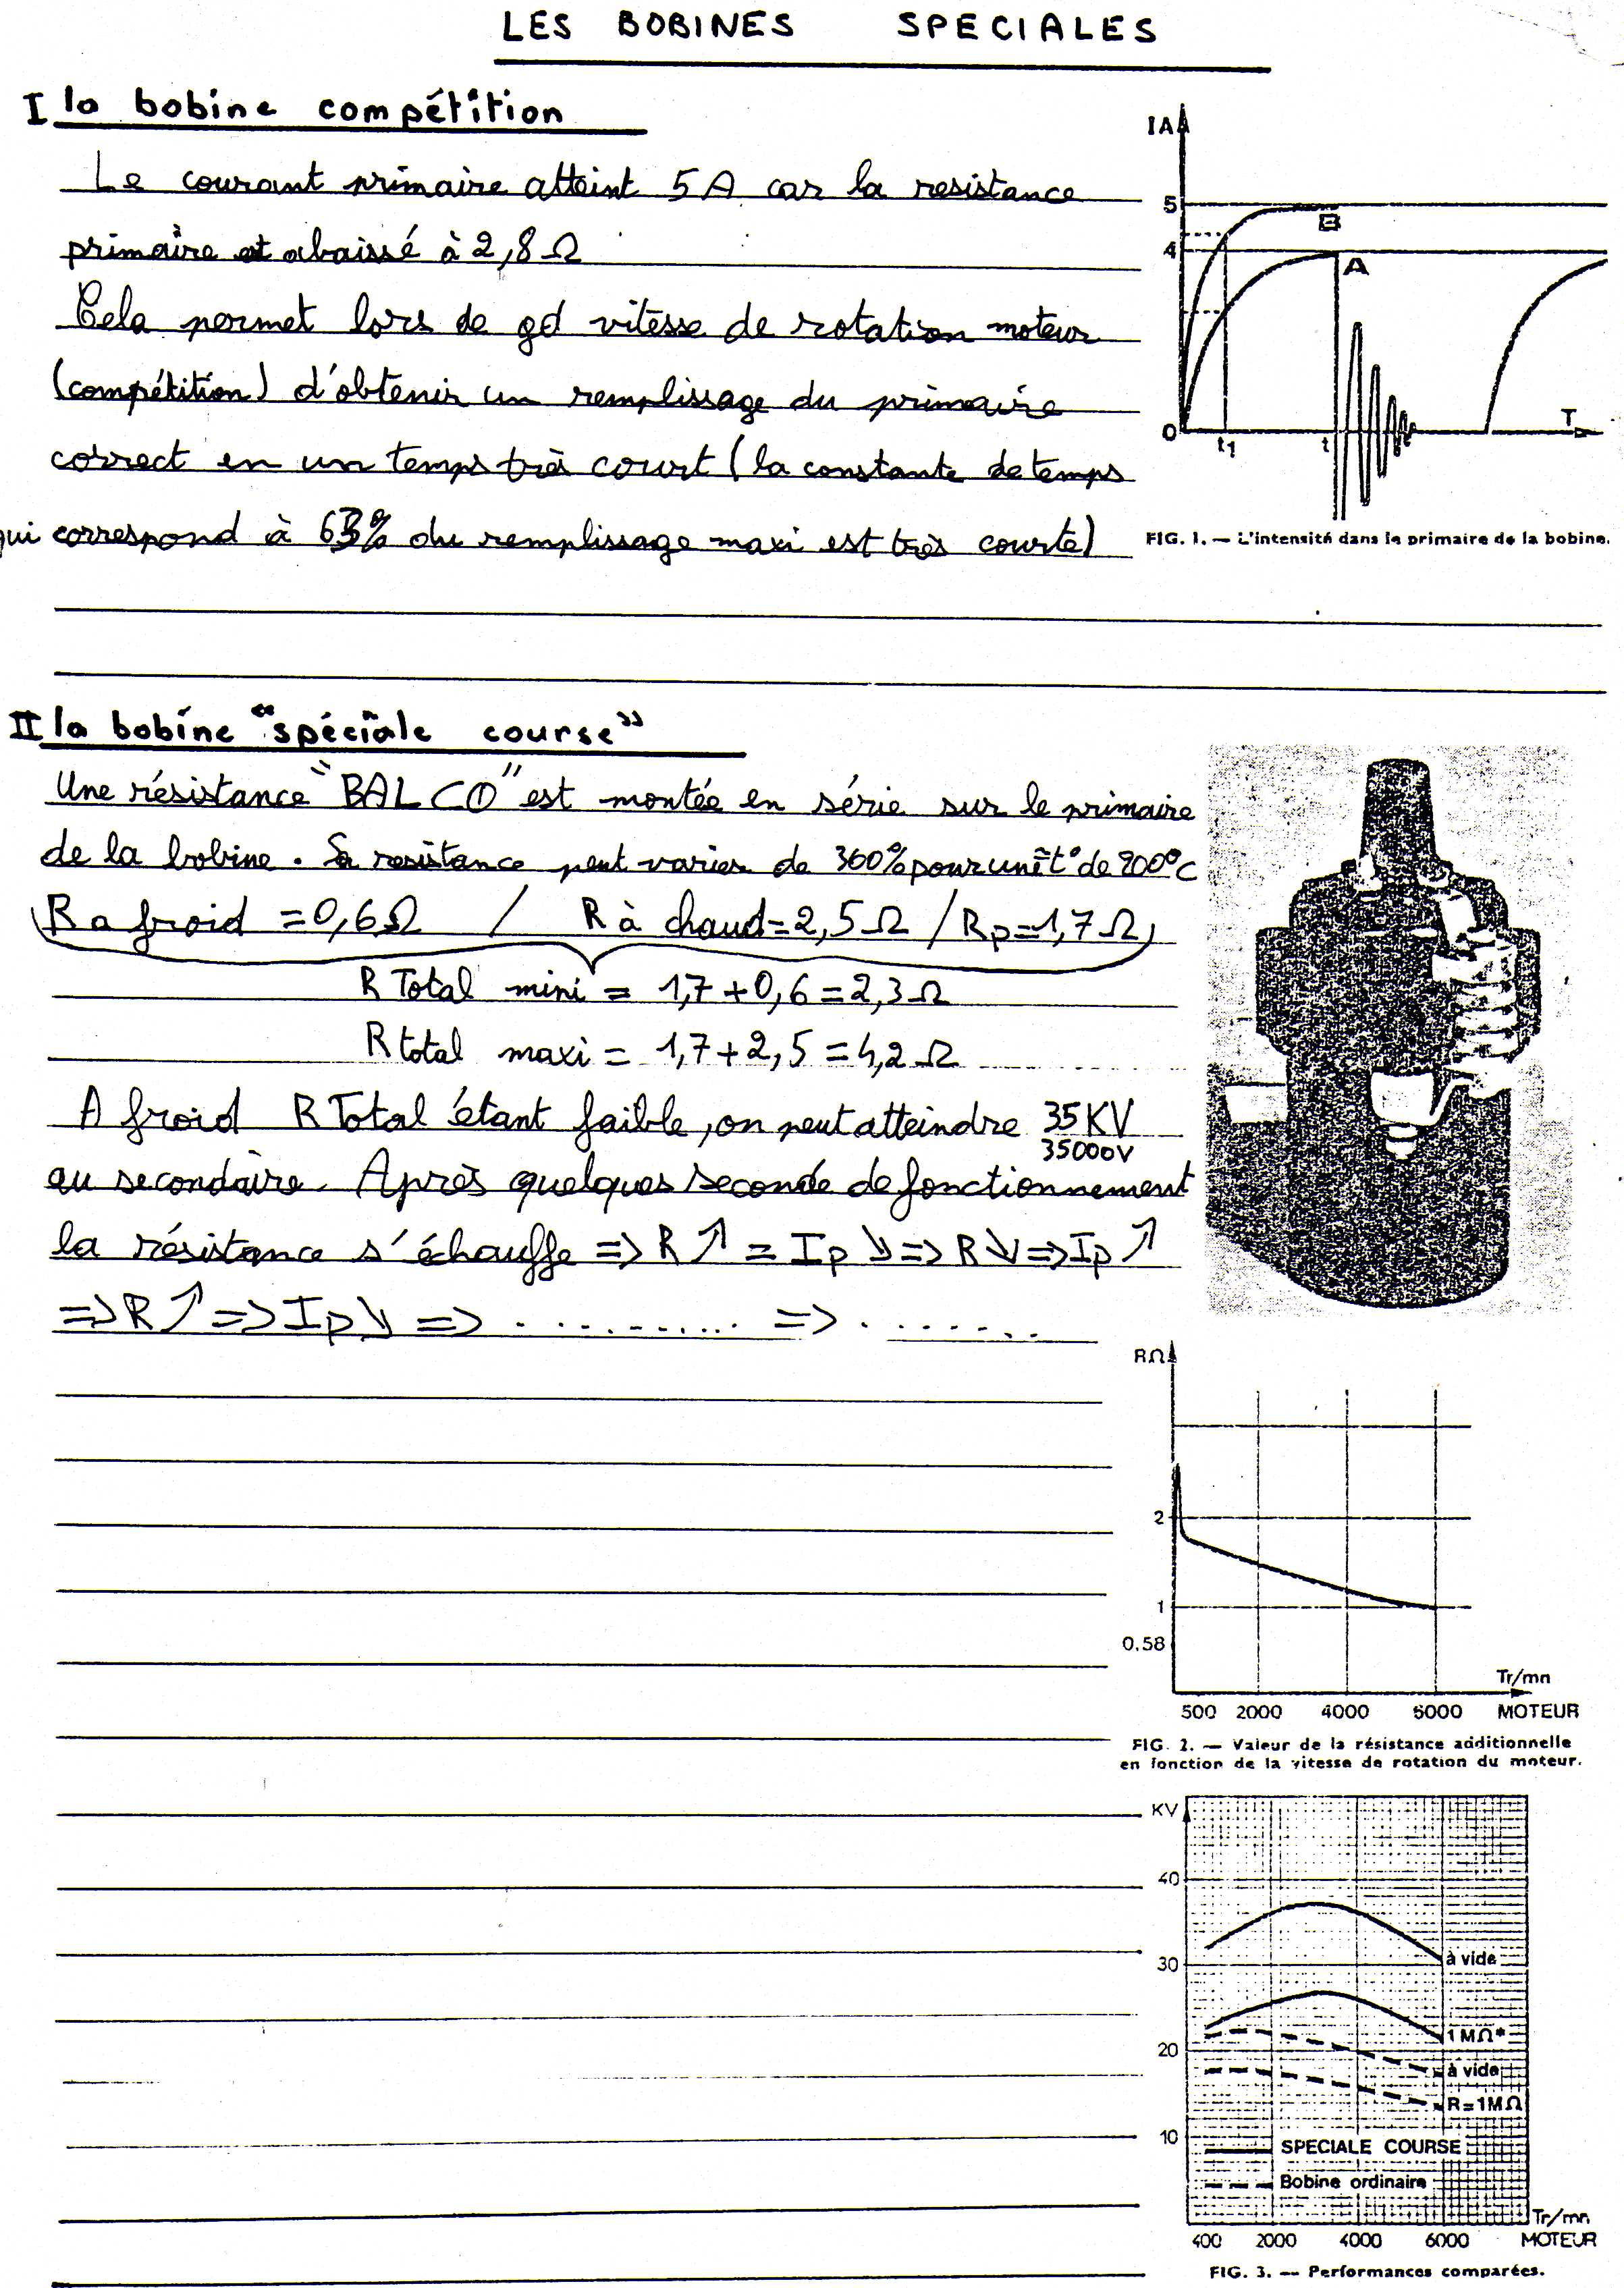 LES BOBINES SPECIALES
I la bobine compétition
Le courant primaire atteint 5A car la resistance
primaire est abaissé à 2,8 Ω
Cela permet lors de gd vitesse de rotation moteur
(compétition) d'obtenir un remplissage du primaire
correct en un temps très court (la constante de temps
qui correspond à 63% du remplissage maxi est très courte)
IA
5
B
4
A
0
t1
t
T
FIG. 1. — L'intensité dans le primaire de la bobine.
II la bobine "spéciale course"
Une résistance "BALCO" est montée en série sur le primaire
de la bobine. Sa resistance peut varier de 360% pour une t° de 200°C
R a froid = 0,6Ω / R à chaud = 2,5Ω / Rp = 1,7Ω
R Total mini = 1,7+0,6 = 2,3Ω
R total maxi = 1,7+2,5 = 4,2Ω
A froid R Total étant faible, on peut atteindre 35KV
35000V
au secondaire. Après quelques seconde de fonctionnement
la résistance s'échauffe => R ↗ = Ip ↘ => R ↘ => Ip ↗
=> R ↗ => Ip ↘ => ........... => ........
RΩ
2
1
0.58
Tr/mn
500 2000 4000 6000 MOTEUR
FIG. 2. — Valeur de la résistance additionnelle
en fonction de la vitesse de rotation du moteur.
KV
40
30
à vide
1MΩ*
20
à vide
R=1MΩ
10
SPECIALE COURSE
Bobine ordinaire
Tr/mn
400 2000 4000 6000 MOTEUR
FIG. 3. — Performances comparées.